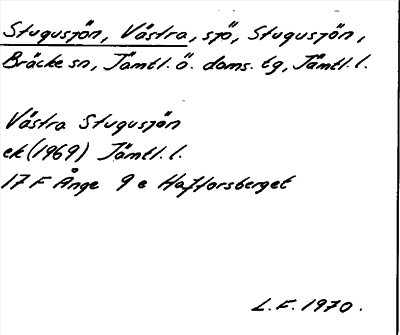 Stugusjön, Västra, sjö, Stugusjön,
Bräcke sn, Jämtl. Ö. doms. tg, Jämtl. l.
Västra Stugusjön
ek (1969) Jämtl. l.
17 F Ånge 9 e Haftorsberget
L.F. 1970.